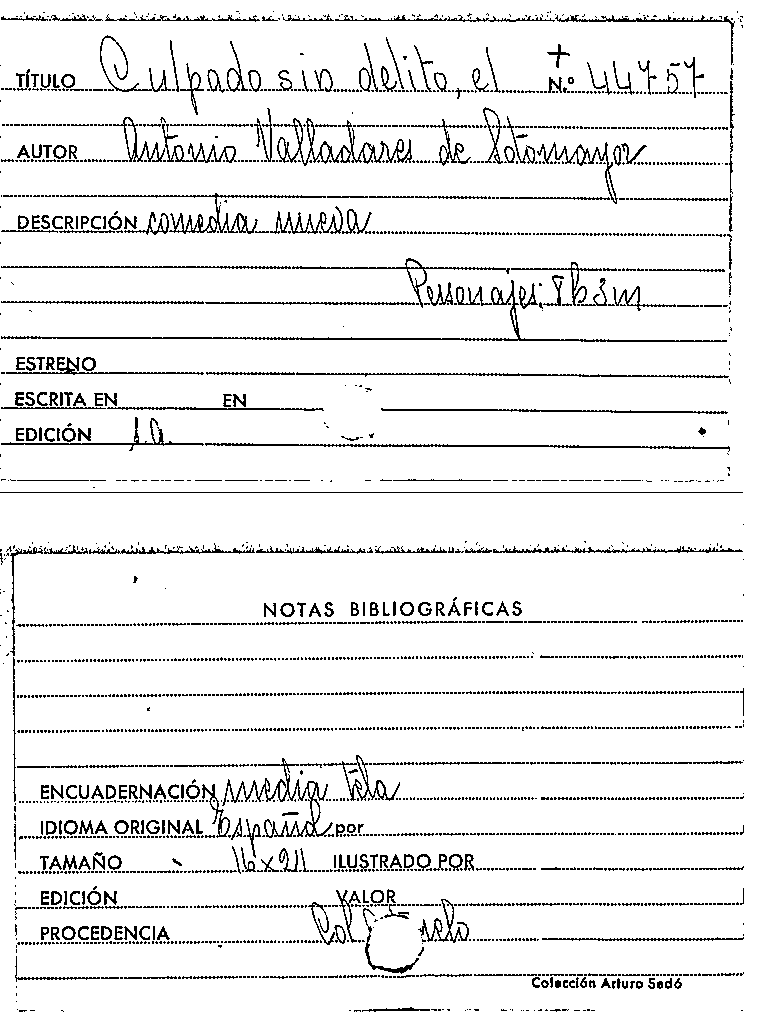 TÍTULO Culpado sin delito, el + N.º 44757
AUTOR Antonio Valladares de Sotomayor
DESCRIPCIÓN comedia nueva
Personajes: 8h 3m
ESTRENO
ESCRITA EN EN
EDICIÓN s.a.
NOTAS BIBLIOGRÁFICAS
ENCUADERNACIÓN media tela
IDIOMA ORIGINAL Español por
TAMAÑO 16x211 ILUSTRADO POR
EDICIÓN VALOR
PROCEDENCIA Col
Colección Arturo Sedó